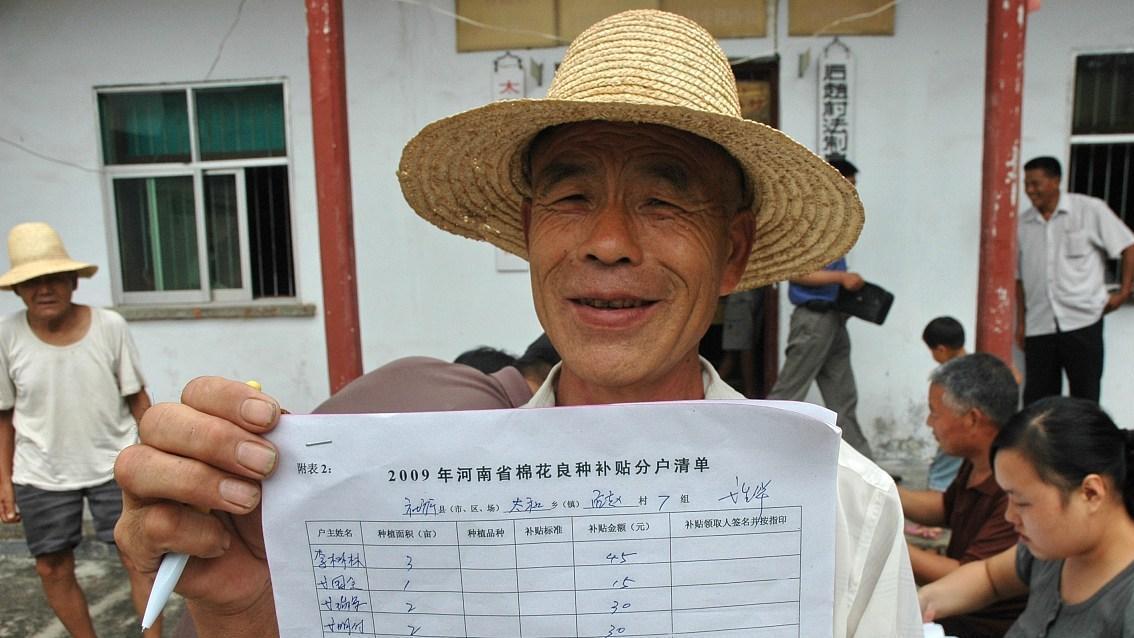 太
后赵村法制
附表2：
2009年河南省棉花良种补贴分户清单
县（市、区、场）太和乡（镇）后赵村7组
户主姓名 种植面积（亩） 种植品种 补贴标准 补贴金额（元） 补贴领取人签名并按指印
李树林 3 45
1 15
2 30
2 30